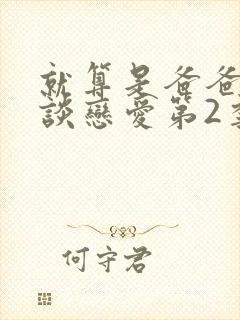 就算是爸爸
談戀愛第2季
何守君